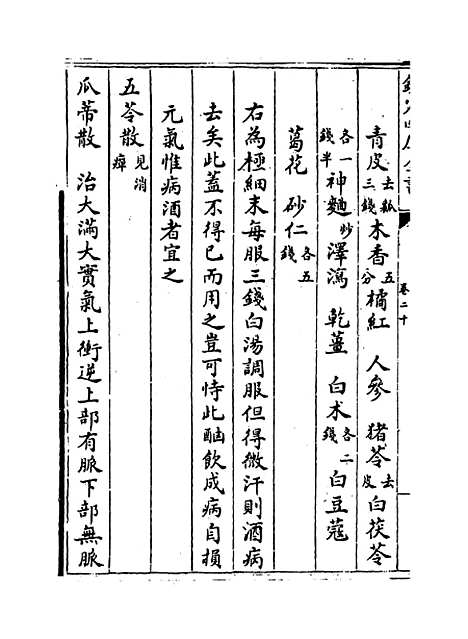 欽定四庫全書
卷二十
青皮去瓤三錢木香五分橘紅 人參 猪苓去皮白茯苓
各一錢半神麯炒澤瀉 乾薑 白术各二錢白豆蔻
葛花 砂仁各五錢
右為極細末每服三錢白湯調服但得微汗則酒病
去矣此蓋不得已而用之豈可恃此酗飲成病自損
元氣惟病酒者宜之
五苓散見消癉
瓜蒂散 治大滿大實氣上衝逆上部有脈下部無脈